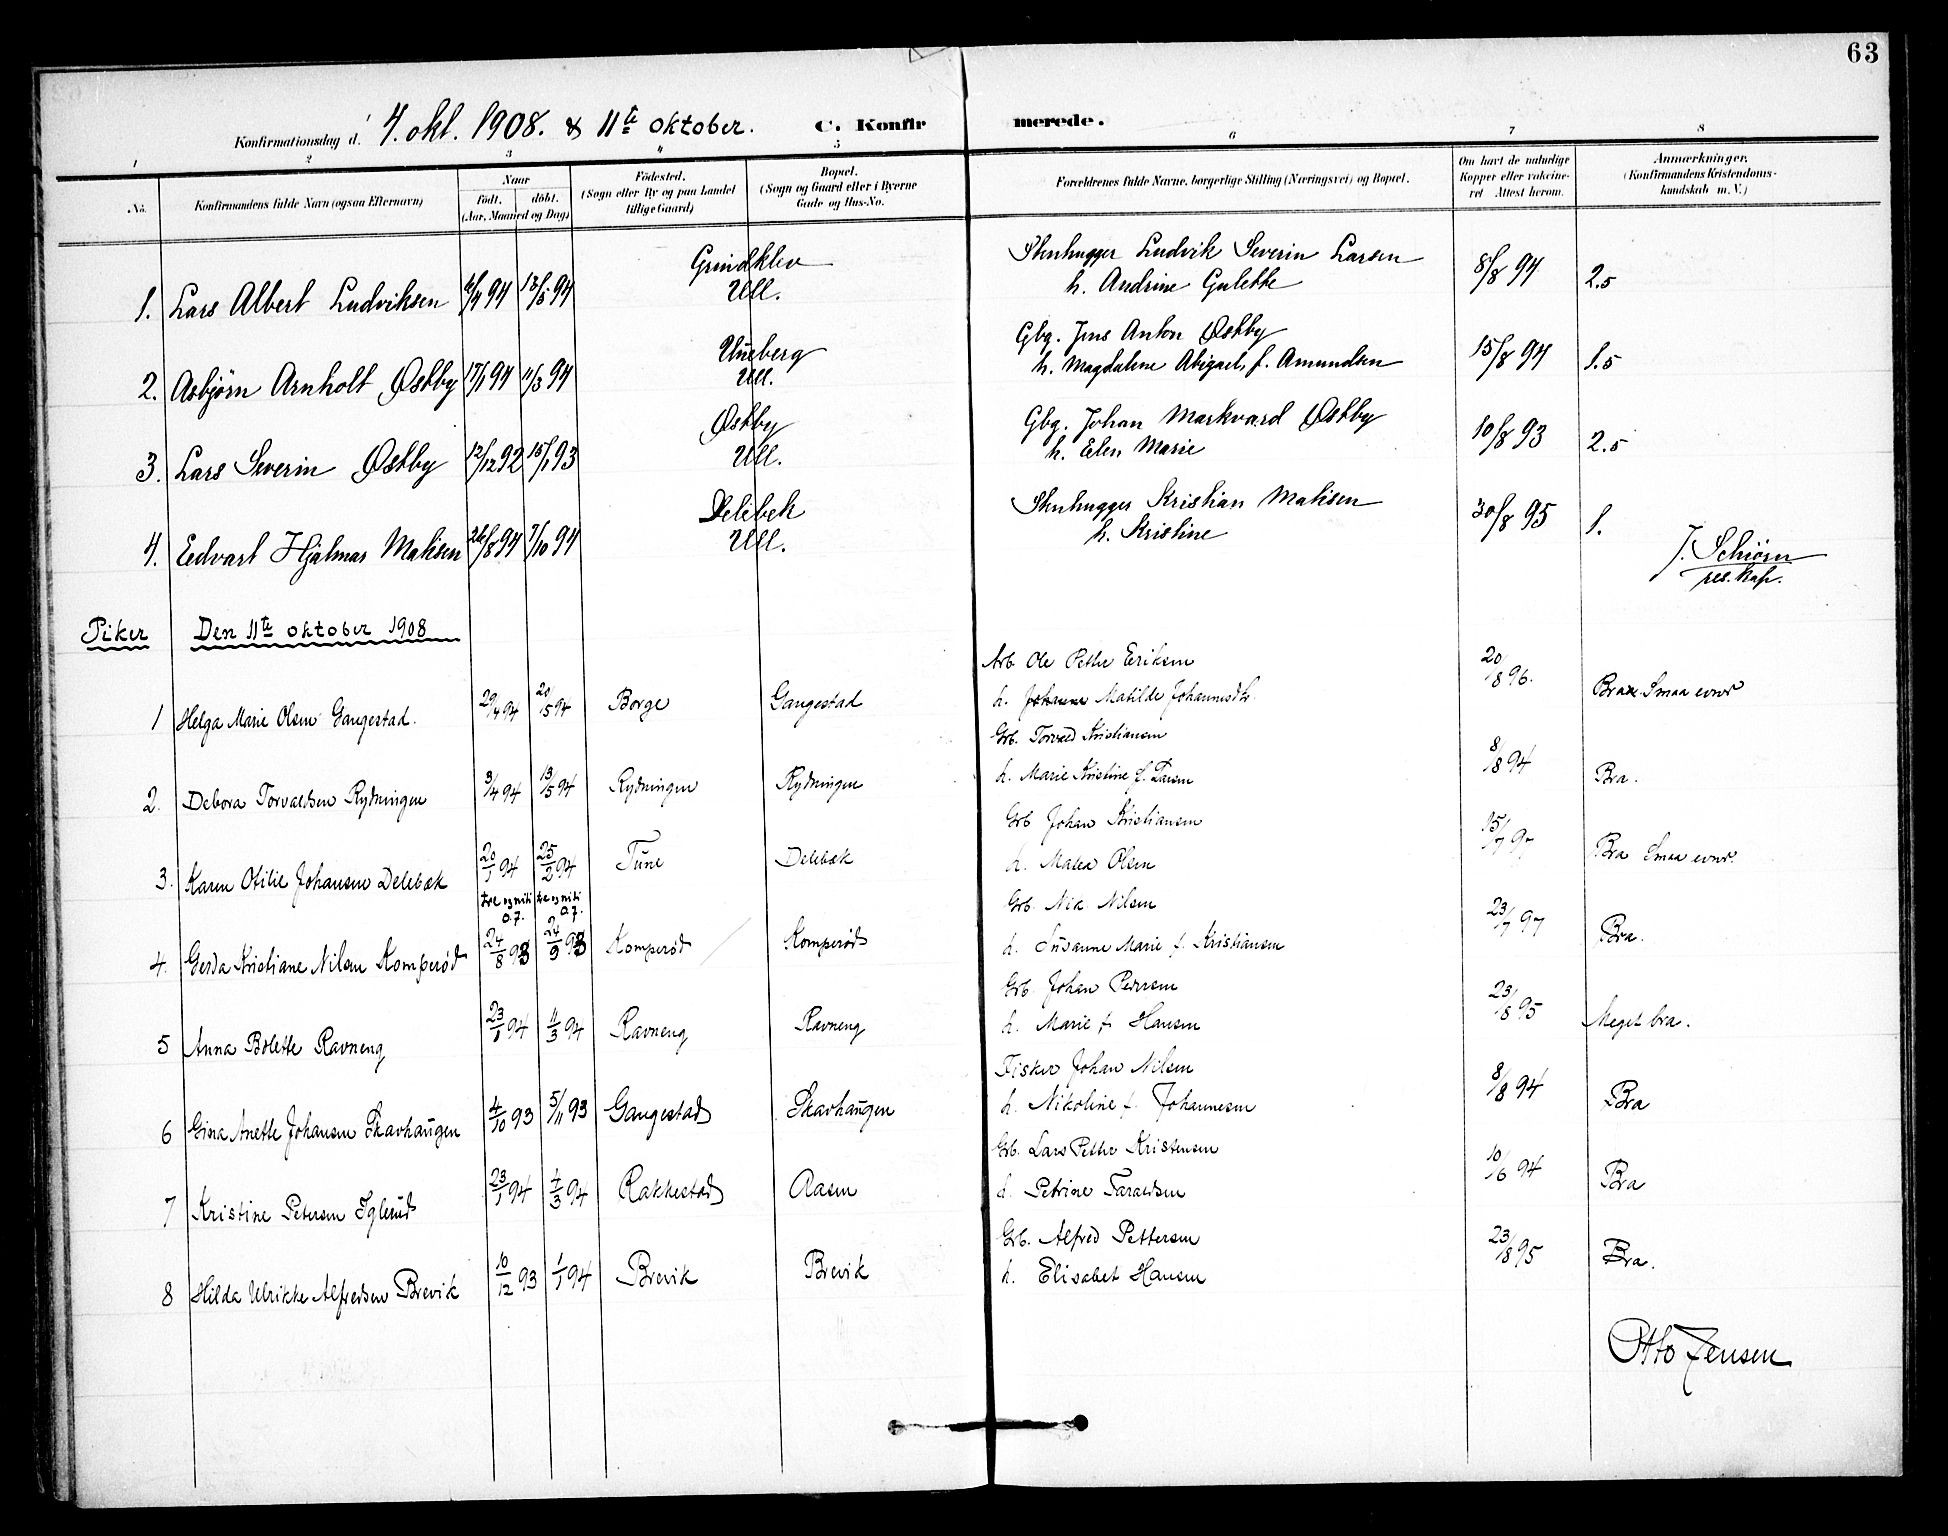 63
Konfirmationsdag d. 4. okt. 1908. & 11te oktober. C. Konfirmerede.
1 2 3 4 5 6 7 8
No.
Konfirmandens fulde Navn (ogsaa Efternavn)
Naar
födt. döbt.
(Aar, Maaned og Dag)
Födested.
(Sogn eller By og paa Landet
tillige Gaard)
Bopæl.
(Sogn og Gaard eller i Byerne
Gade og Hus-No.
Forældrenes fulde Navne, borgerlige Stilling (Næringsvei) og Bopæl.
Om havt de naturlige
Kopper eller vakcine-
ret Attest herom.
Anmærkninger.
(Konfirmandens Kristendoms-
kundskab m. V.)
Grindklev Stenhugger Ludvik Severin Larsen
1. Lars Albert Ludviksen 6/4 94 13/5 94 Ull. h. Andrine Gulette 8/8 94 2.5
Uneberg Gbg. Jens Anton Østby
2. Asbjörn Arnholt Østby 17/1 94 11/3 94 Ull. h. Magdalene Abigael, f. Amundsen 15/8 94 1.5
Østby Gbg. Johan Markvard Østby
3. Lars Severin Østby 12/12 92 15/1 93 Ull. h. Elen Marie 10/8 93 2.5
Delebek Stenhugger Kristian Matisen
4. Edvart Hjalmar Matisen 26/8 94 7/10 94 Ull. h. Kristine 30/8 95 1.
J. Schiörn
res. kap.
Piker Den 11te oktober 1908
Arb. Ole Petter Eriksen
1 Helga Marie Olsen Gangestad. 29/4 94 20/5 94 Borge Gangestad h. Matilde Johannesdtr. 20/8 96. Bra. Smaa evner
Grb. Torvald Kristiansen
2. Debora Torvaldsen Rydningen 3/4 94 13/5 94 Rydningen Rydningen h. Marie Kristine f. Larsen 8/8 94 Bra.
Grb Johan Kristiansen
3. Karen Otilie Johansen Delebæk 20/1 94 25/2 94 Tune Delebæk h. Matea Olsen 15/7 97 Bra Smaa evner.
tre og niti tre og niti
O.J. O.J.
Grb. Nik. Nilsen
4. Gerda Kristiane Nilsen Komperød 24/8 93 24/9 93 Komperød Komperød h. Susanne Marie f. Kristiansen 23/7 97 Bra.
Grb. Johan Pedersen
5 Anna Bolette Ravneng 23/1 94 11/3 94 Ravneng Ravneng h. Marie f. Hansen 23/8 95 Meget bra.
Fisker Johan Nilsen
6 Gina Anette Johansen Skavhaugen 4/10 93 5/11 93 Gangestad Skavhaugen h. Nikoline f. Johannesen 8/8 94 Bra
Grb. Lars Petter Kristensen
7 Kristine Petersen Iglerud 23/1 94 4/3 94 Rakkestad Aasen h. Petrine Taraldsen 10/6 94 Bra
Grb. Alfred Pettersen
8 Hilda Ulrikke Alfredsen Brevik 10/12 93 1/1 94 Brevik Brevik h. Elisabet Hansen 23/8 95 Bra.
Otto Jensen